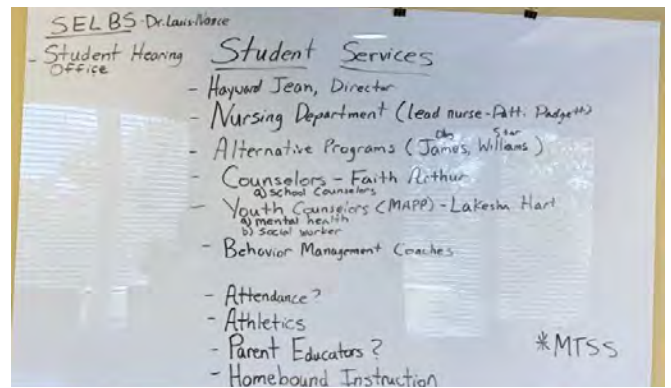 SELBS - Dr. Laris-Nance
- Student Hearing
Office
Student Services
- Hayward Jean, Director
- Nursing Department (lead nurse - Patti Padgett)
- Alternative Programs (James, Williams)
Star
- Counselors - Faith Arthur
a) school Counselors
- Youth Counselors (MAPP) - Lakesha Hart
a) mental health
b) social worker
- Behavior Management Coaches
- Attendance?
- Athletics
- Parent Educators?
- Homebound Instruction
*MTSS